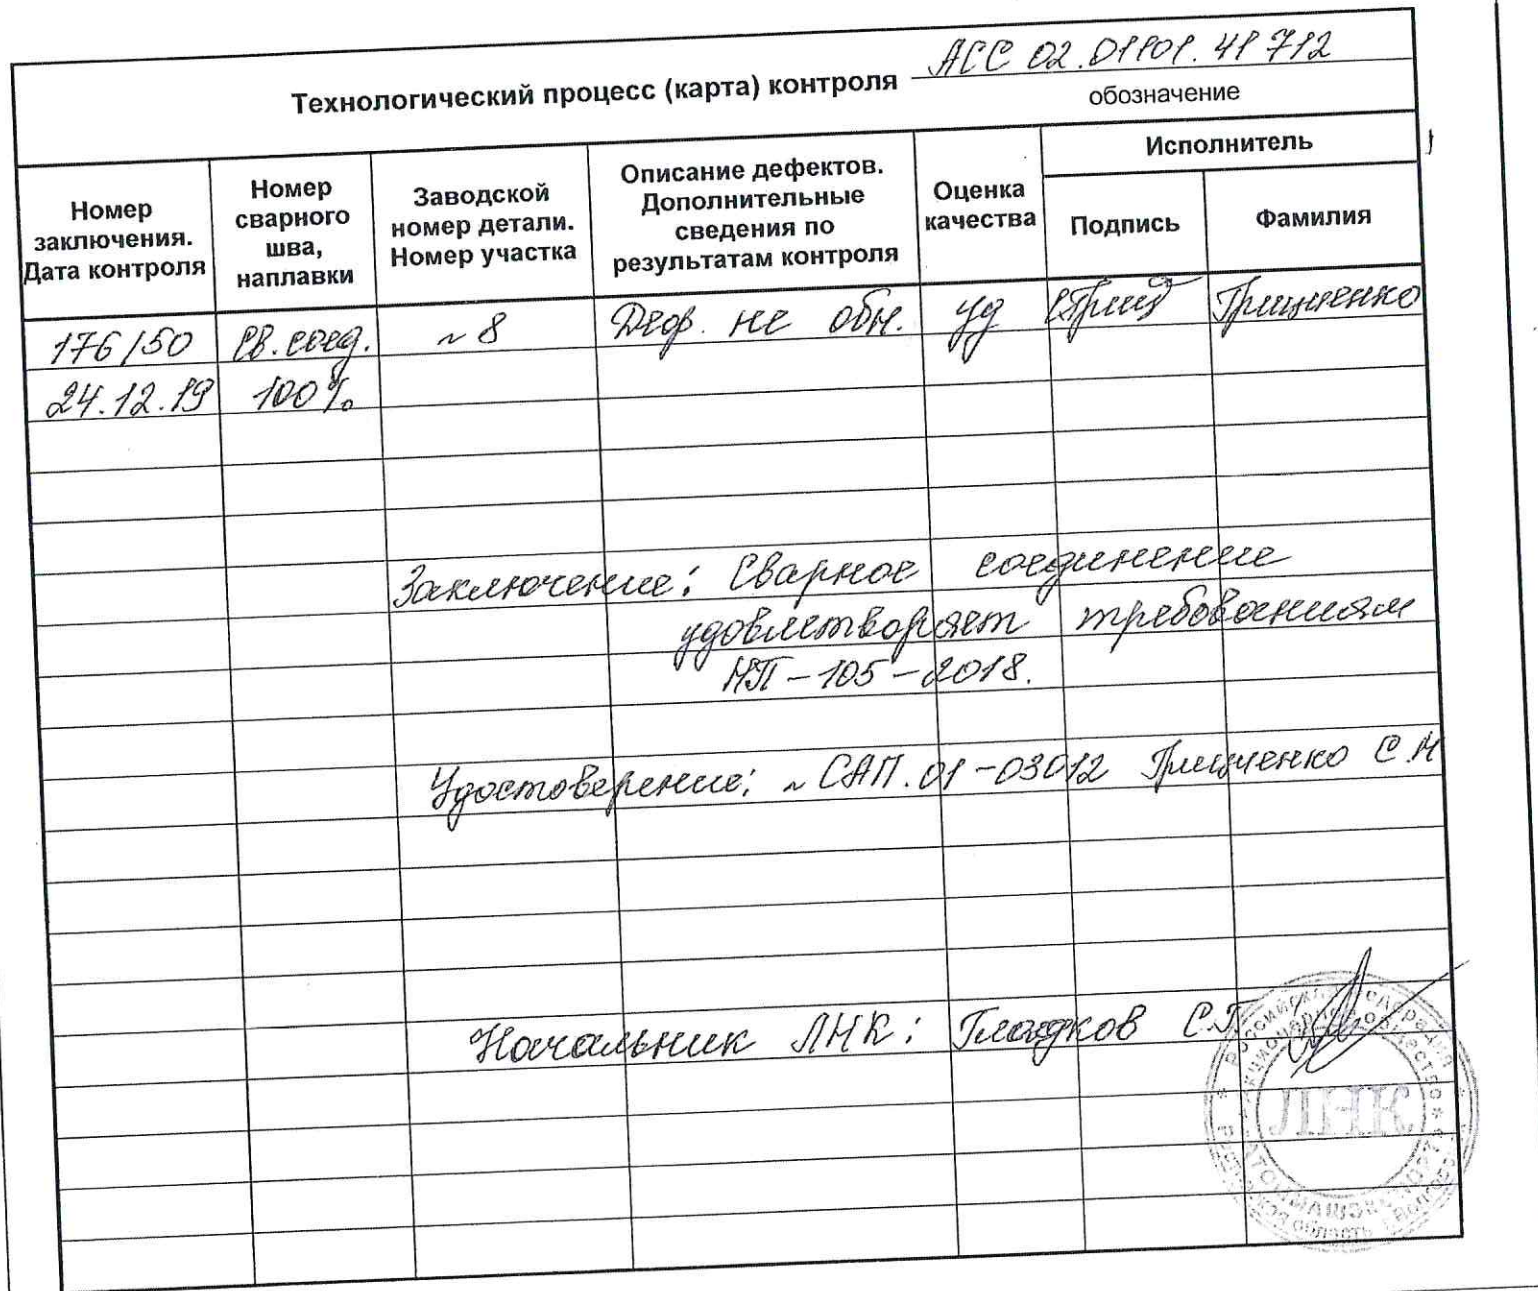 Технологический процесс (карта) контроля АСС 02.01101.41712
обозначение
Номер заключения. Дата контроля
Номер сварного шва, наплавки
Заводской номер детали. Номер участка
Описание дефектов. Дополнительные сведения по результатам контроля
Оценка качества
Исполнитель
Подпись
Фамилия
176/50 Св. соед. ~ 8 Деф. не обн. уд Грищенко
24.12.19 100%
Заключение: Сварное соединение
удовлетворяет требованиям
НП-105-2018.
Удостоверение: ~ САП.01-03012 Грищенко С.Н
Начальник ЛНК: Гладков С.П
ЛНК